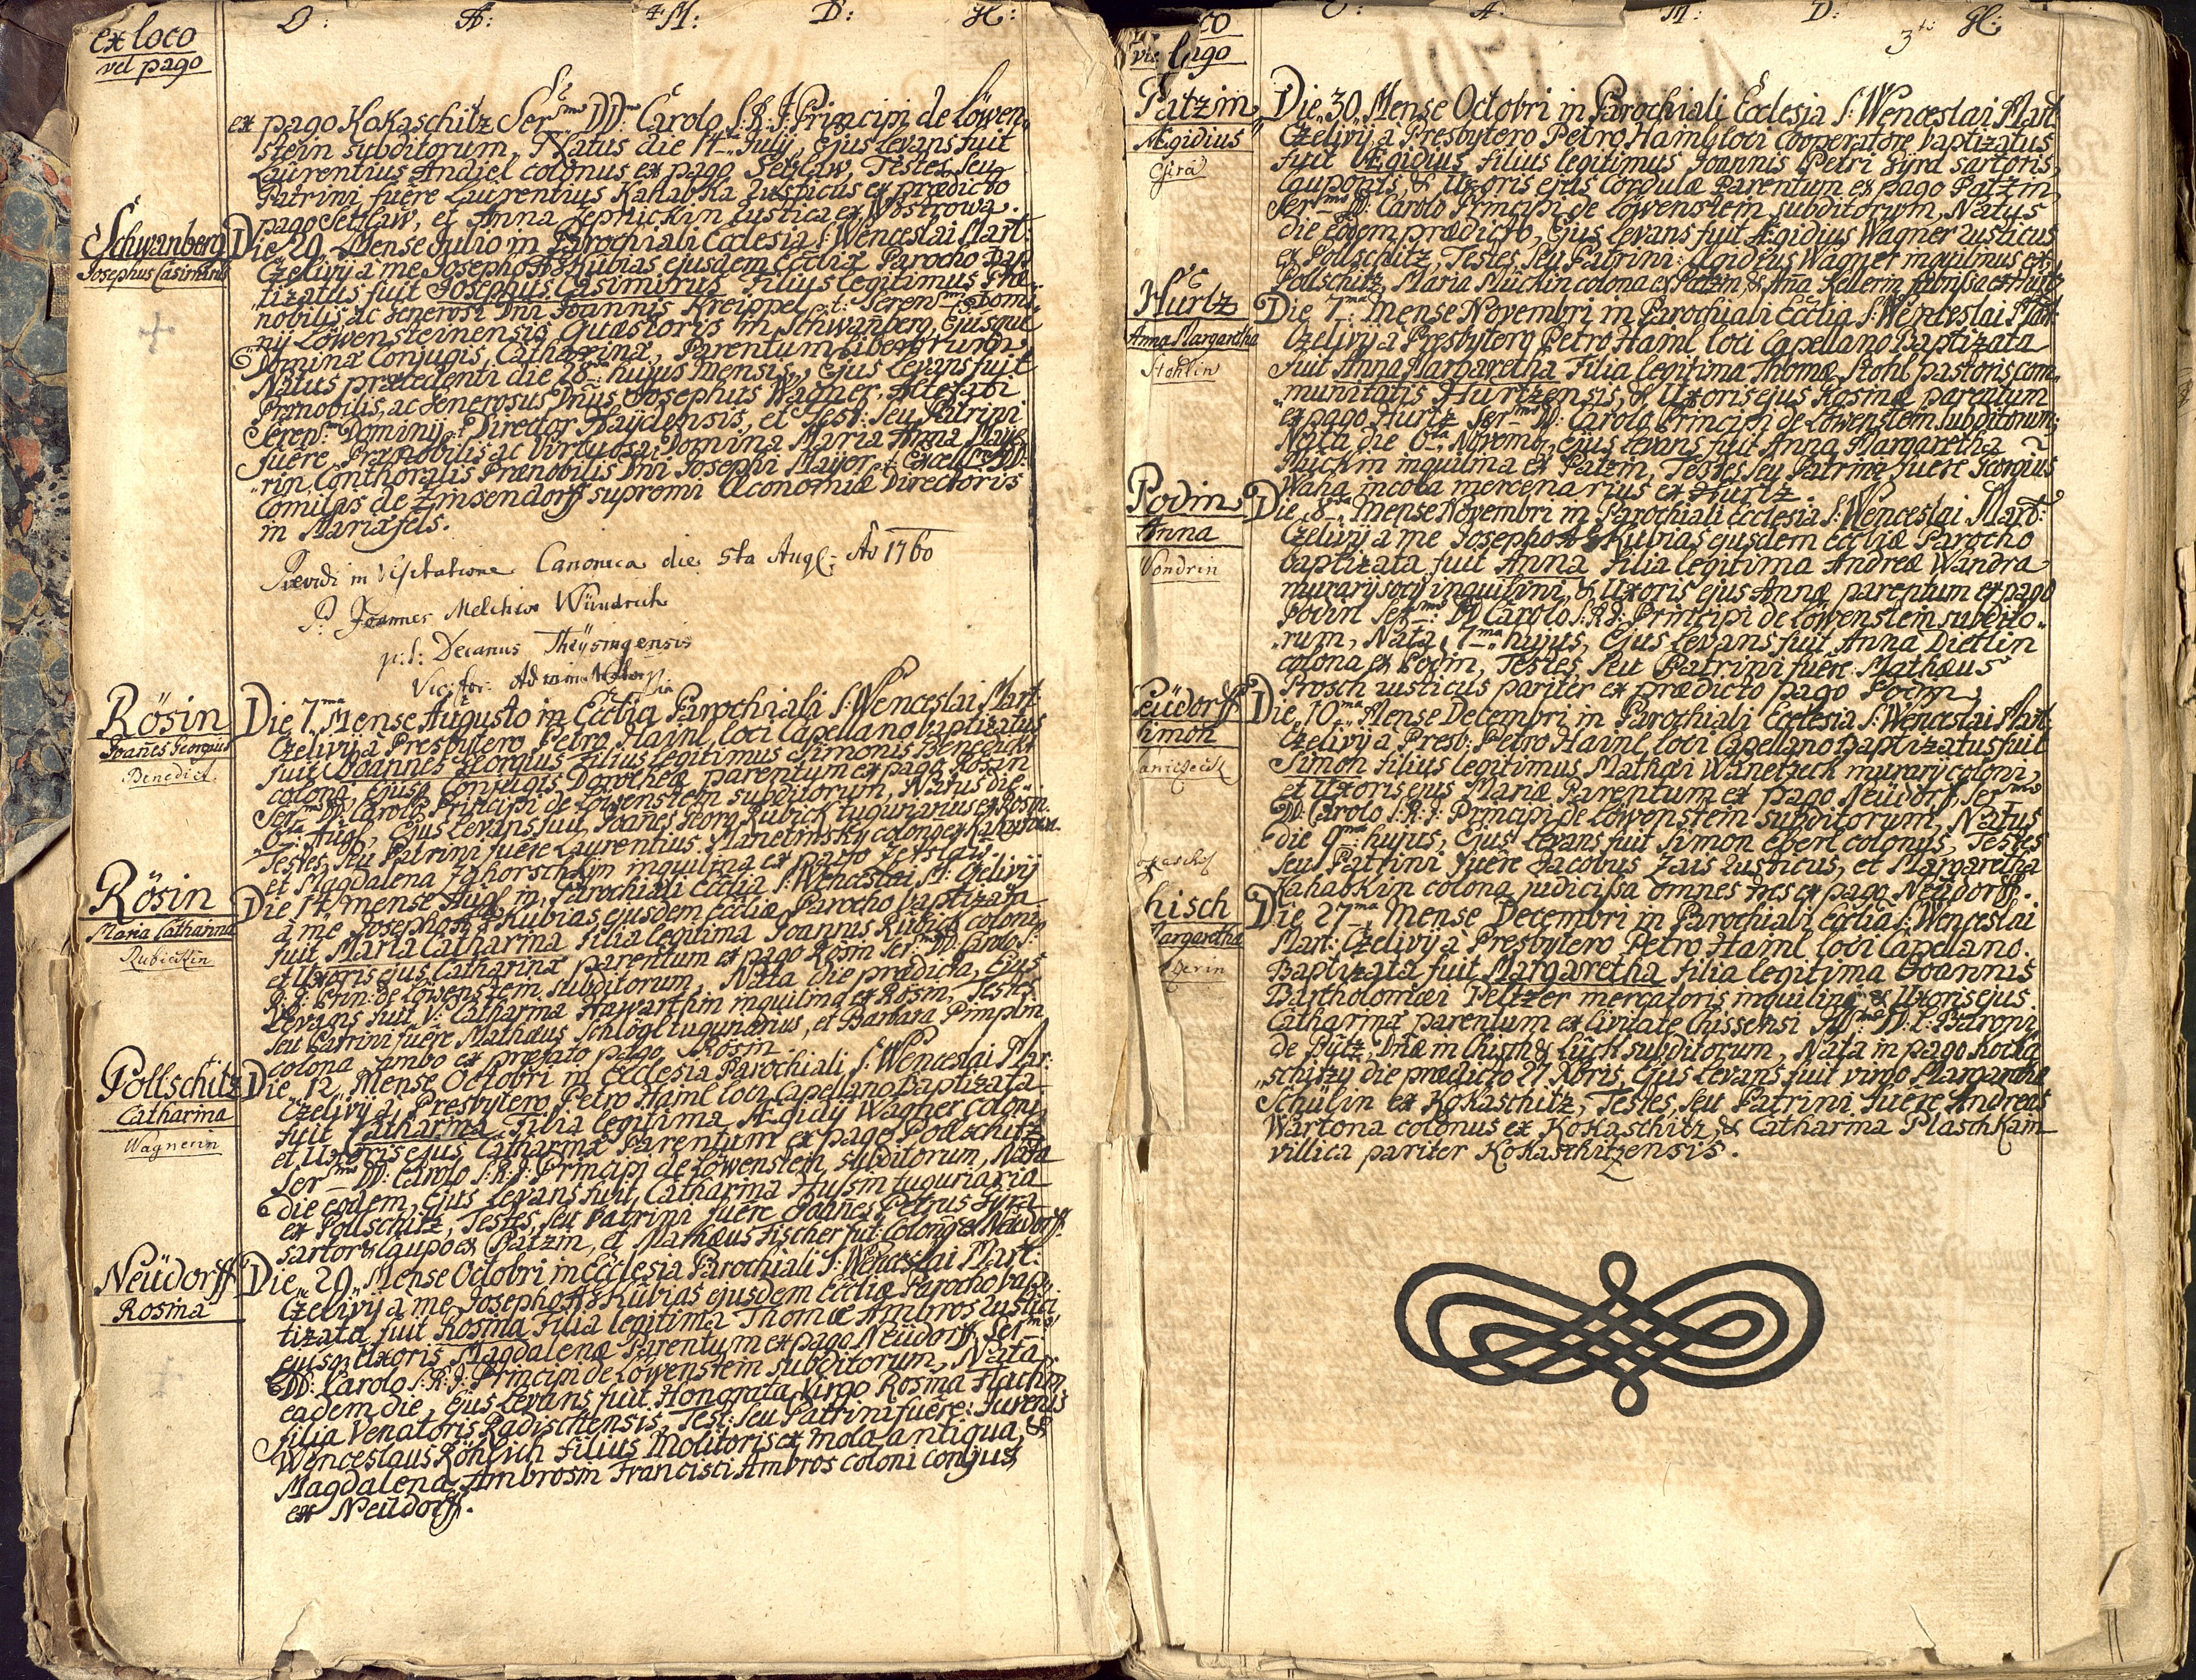 O: A: M: D: Gl:
ex loco
vel pago
ex pago Kokaschitz Ser:mo DD: Carolo S: R: J: Principi de Löwen
stein subditorum, Natus die 17 July, ejus Levans fuit
Laurentius Andiel colonus ex pago Setzlaw, Testes seu
Patrini fuêre Laurentius Kahabka Rusticus ex prædicto
pago Setzlaw, et Anna rustica ex Wostrowa.
Schwanberg
Josephus Casimirus
Die 29 Mense Julio in Parochiali Ecclesia S: Wenceslai Mart:
Czelivij a me Josepho Kubias ejusdem Eccliæ Parocho bap
tizatus fuit Josephus Casimirus Filius legitimus Præ
nobilis ac Generosi Dni Joannis Kreippel t: Seren: Domi
nij Löwensteinensis Quæstoris in Schwanberg, Ejusque
Dominæ Conjugis, Catharinæ, Parentum Liberorum,
Natus præcedenti die 28 hujus mensis, Ejus Levans fuit
Prænobilis, ac Generosus Dnus Josephus Wagner, Attefati
Seren: Dominij Director Haÿdensis, et Test: seu Patrini
fuêre, Prænobilis ac Virtuosa Domina Maria Anna Maÿe
rin, Conthoralis Prænobilis Dni Josephi Maÿer, Excell: DD:
Comitis de Zinsendorff supremi Œconomiæ Directoris
in Mariæfels.
Prævidi in Visitatione Canonica die 5ta Augl: Ao 1760
P: Joannes Melchior Wündrich
p:t: Decanus Theÿsingensis
Vic: for:
Rösin
Joañes Georgius
Benedict
Die 7ma Mense Augusto in Ecclia Parochiali S: Wenceslai Mart
Czelivij a Presbytero Petro Hainl loci Capellano baptizatus
fuit Joannes Georgius Filius legitimus Simonis Benedickt
coloni, ejusq Conjugis Dorotheæ parentum ex pago Rösin
Ser:mo DD: Carolo Principi de Löwenstein subditorum, Natus die
6ta Augl, Ejus Levans fuit Joañes Georg Rubick tugurarius ex Rosin.
Testes, seu Patrini fuêre Laurentius colonus ex
et Magdalena inquilina ex pago Setzlaw
Rösin
Maria Catharina
Rubickin
Die 14 mense Augl in Parochiali Ecclia S: Wenceslai M: Czelivij
â me Josepho Kubias ejusdem Eccliæ Parocho baptizata
fuit Maria Catharina Filia legitima Joannis Rubick coloni
et Uxoris ejus Catharinæ parentum ex pago Rösin Ser:mo DD: Carolo S:
R: J: Prin: de Löwenstein subditorum, Nata die prædicta, Ejus
Levans fuit V: Catharina Hawarthin inquilina ex Rösin, Testes
seu Patrini fuêre Mathæus Schlögl tugurarius, et Barbara Pimplin
colona ambo ex præfato pago Rösin.
Pollschitz
Catharina
Wagnerin
Die 12 Mense Octobri in Ecclesia Parochiali S: Wenceslai Mar:
Czelivij a Presbytero Petro Hainl loci Capellano baptizata
fuit Catharina Filia legitima Ægidij Wagner coloni
et Uxoris ejus Catharinæ Parentum ex pago Pollschitz
Ser:mo DD: Carolo S: R: J: Principi de Löwenstein subditorum, Nata
die eodem, Ejus Levans fuit Catharina Hussin tuguriaria
ex Pollschitz, Testes, seu Patrini fuêre Joañes Petrus Gyra
sartor & caupo ex Patzin, et Mathæus Fischer fut: Colonus ex Neüdorff.
Neüdorff
Rosina
Die 29 Mense Octobri in Ecclesia Parochiali S: Wenceslai Mart:
Czelivij a me Josepho Kubias ejusdem Eccliæ Parocho bap
tizata fuit Rosina Filia legitima Thomæ Ambros Rustici
ejusq Uxoris Magdalenæ Parentum ex pago Neüdorff, Ser:mo
DD: Carolo S: R: J: Principi de Löwenstein subditorum, Nata
eadem die, Ejus Levans fuit Honorata Virgo Rosina
Filia Venatoris Radischensis, Test: seu Patrini fuêre: Juvenis
Wenceslaus Röhlich Filius Molitoris ex mola antiqua, &
Magdalena Ambrosin Francisci Ambros coloni conjux
ex Neüdorff.
O: A: M: D: 3tc Gl:
co
vel pago
Patzin
Ægidius
Gira
Die 30 Mense Octobri in Parochiali Ecclesia S: Wenceslai Mart
Czelivij a Presbytero Petro Hainl loci Cooperatore baptizatus
fuit Ægidius filius legitimus Joannis Petri Gyra sartoris,
cauponis, & Uxoris ejus Cordulæ Parentum ex pago Patzin
Ser:mo DD: Carolo Principi de Löwenstein subditorum, Natus
die eodem prædicto, Ejus Levans fuit Ægidius Wagner rusticus
ex Pollschitz, Testes, seu Patrini: Ægidius Wagner inquilinus ex
Pollschitz, Maria Mückin colona ex Patzin, & Aña Kellerin fabrissa ex Hurtz
Hurtz
Anna Margaretha
Stohlin
Die 7ma Mense Novembri in Parochiali Ecclia S: Wenceslai Mart:
Czelivij a Presbytero Petro Hainl loci Capellano Baptizata
fuit Anna Margaretha Filia legitima Thomæ Stohl pastoris com
munitatis Hurtzensis, & Uxoris ejus Rosinæ parentum
ex pago Hurtz Ser:mo DD: Carolo Principi de Löwenstein subditorum,
Nata die 6ta Novemb, Ejus Levans fuit Anna Margaretha
Mückin inquilina ex Patzin, Testes seu Patrini fuêre Georgius
Waha incola mercenarius ex Hurtz.
Podin
Anna
Vondrin
Die 8va Mense Novembri in Parochiali Ecclesia S: Wenceslai Mart:
Czelivij a me Josepho Kubias ejusdem Eccliæ Parocho
baptizata fuit Anna Filia legitima Andreæ Wandra
murarij socij inquilini, & Uxoris ejus Annæ parentum ex pago
Podin Ser:mo DD Carolo S: R: J: Principi de Löwenstein subdito
rum, Nata 7ma hujus, Ejus Levans fuit Anna Dietlin
colona ex Podin, Testes, seu Patrini fuêre Mathæus
Prosch rusticus pariter ex prædicto pago Podin.
Neüdorff
Simon
Die 10ma Mense Decembri in Parochiali Ecclesia S: Wenceslai Mart
Czelivij a Presb: Petro Hainl loci Capellano baptizatus fuit
Simon Filius legitimus Mathæi Wanetzeck murarij coloni,
et Uxoris ejus Mariæ Parentum ex pago Neüdorf, Ser:mo
DD: Carolo S: R: J: Principi de Löwenstein subditorum, Natus
die 9na hujus, Ejus Levans fuit Simon Eberl colonus, Testes
seu Patrini fuêre Jacobus Zais Rusticus, et Margaretha
Kahabkin colona judicissa omnes tres ex pago Neüdorff.
hisch
Margaretha
Die 27ma Mense Decembri in Parochiali Ecclia S: Wenceslai
Mart: Czelivij a Presbytero Petro Hainl loci Capellano
Baptizata fuit Margaretha Filia legitima Joannis
Bartholomæi Peltzer mercatoris inquilini & Uxoris ejus
Catharinæ parentum ex Civitate Chissensi DD: L: Baroni
de Pütz, Dnæ in Chisch & Luck subditorum, Nata in pago Koka
schitz die prædicto 27 Xbris, Ejus Levans fuit virgo Margaretha
Schülin ex Kokaschitz, Testes, seu Patrini fuêre Andreas
Wartona colonus ex Kokaschitz, & Catharina Plaschkain
villica pariter Kokaschitzensis.